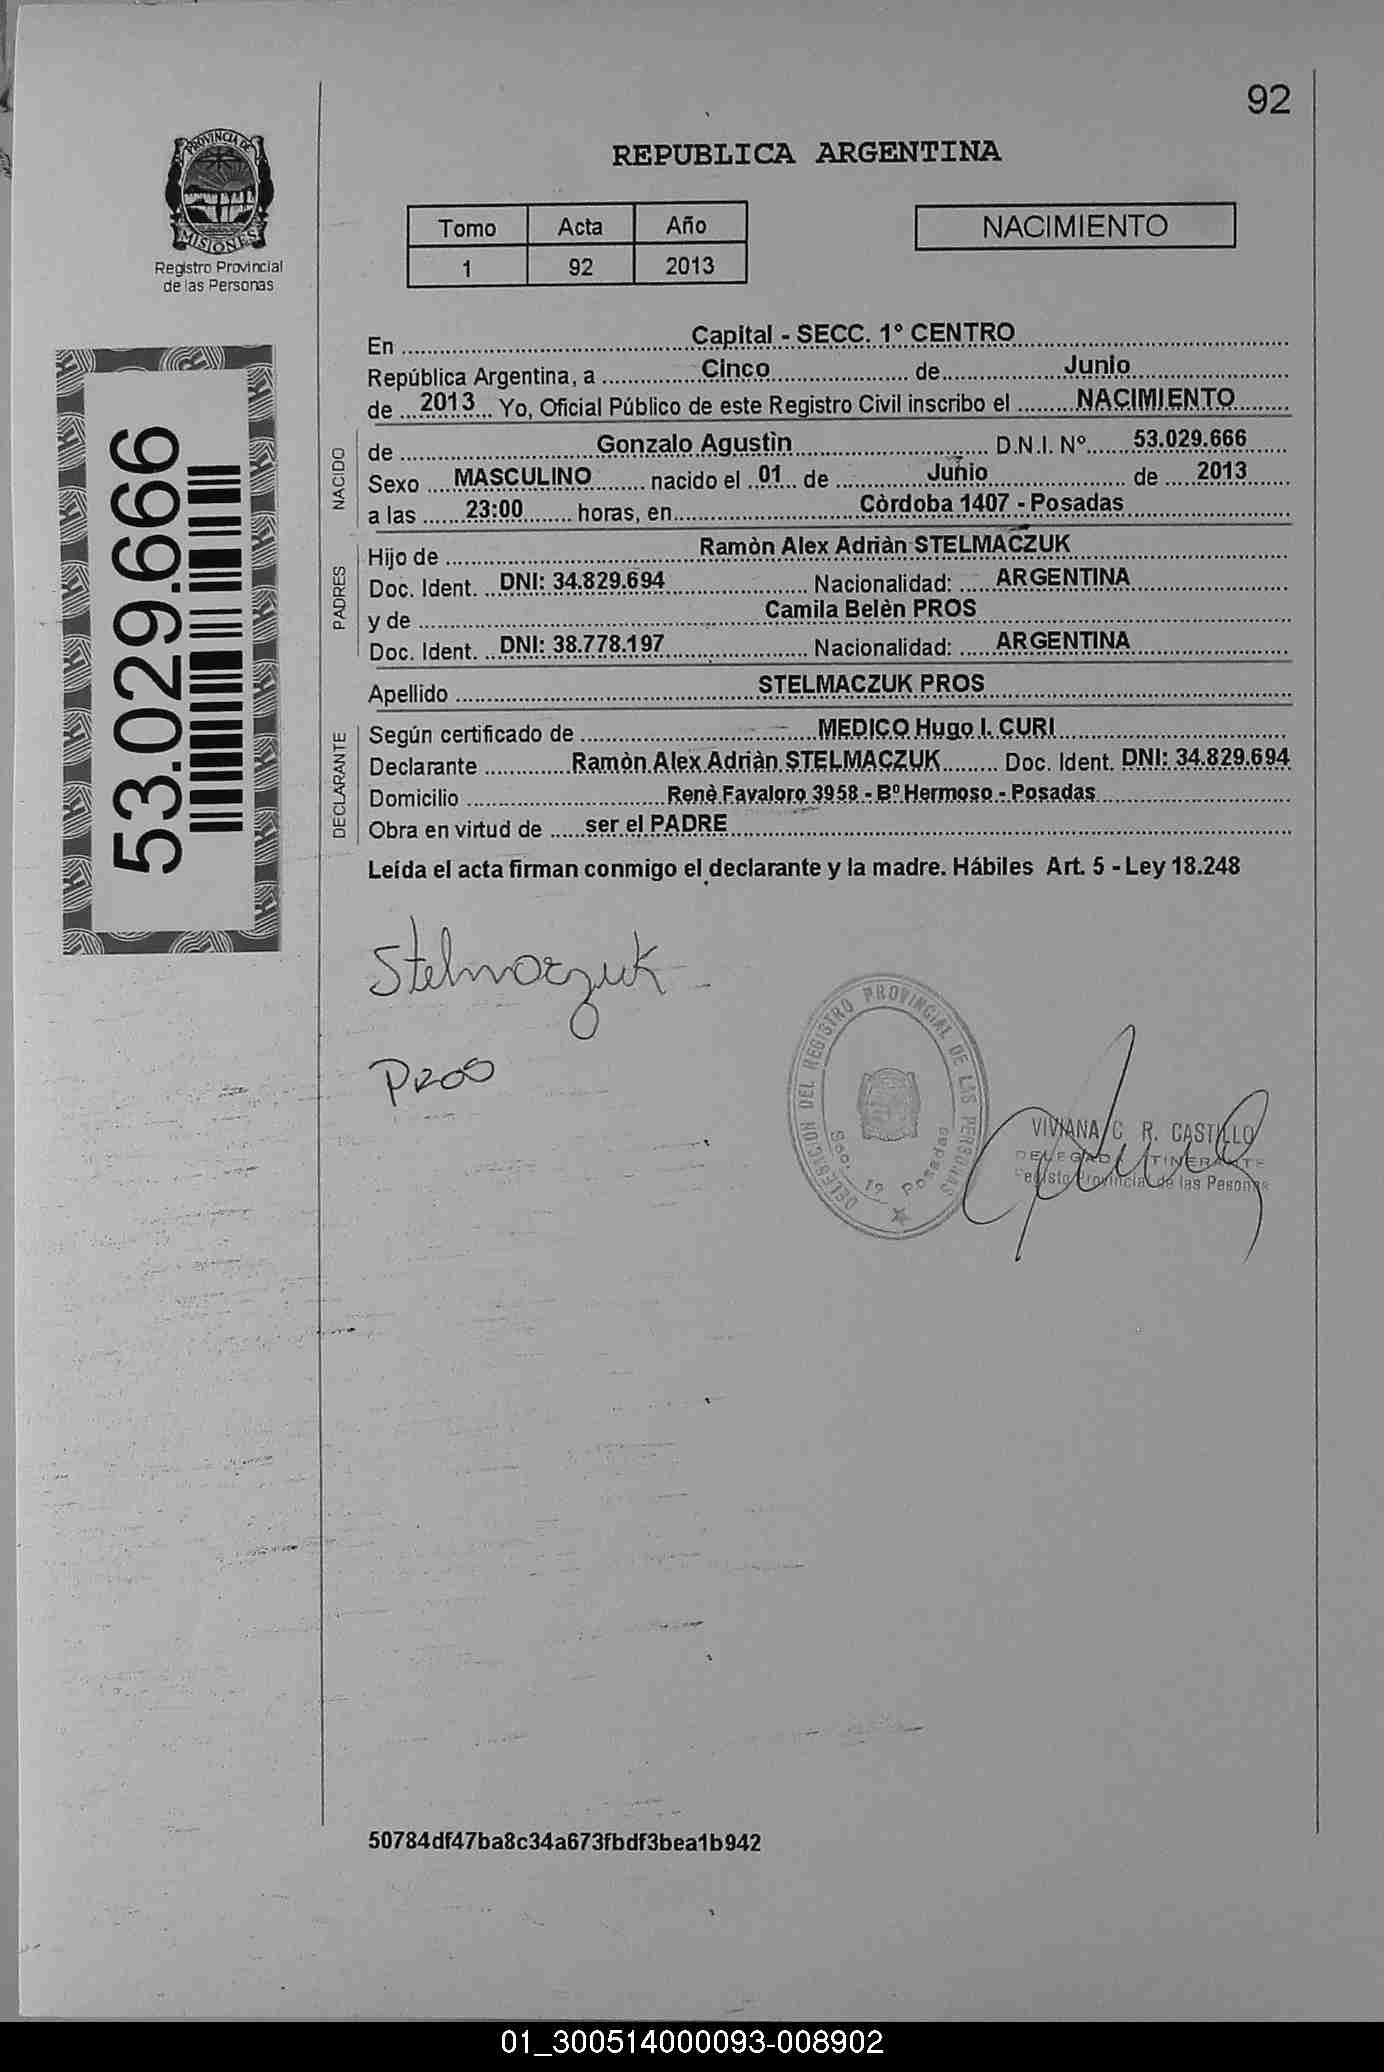 92
PROVINCIA DE
MISIONES
Registro Provincial
de las Personas
REPUBLICA ARGENTINA
Tomo Acta Año
1 92 2013
NACIMIENTO
53.029.666
En Capital - SECC. 1° CENTRO
República Argentina, a Cinco de Junio
de 2013 Yo, Oficial Público de este Registro Civil inscribo el NACIMIENTO
NACIDO
de Gonzalo Agustìn D.N.I. Nº 53.029.666
Sexo MASCULINO nacido el 01 de Junio de 2013
a las 23:00 horas, en Còrdoba 1407 - Posadas
PADRES
Hijo de Ramòn Alex Adriàn STELMACZUK
Doc. Ident. DNI: 34.829.694 Nacionalidad: ARGENTINA
y de Camila Belèn PROS
Doc. Ident. DNI: 38.778.197 Nacionalidad: ARGENTINA
Apellido STELMACZUK PROS
DECLARANTE
Según certificado de MEDICO Hugo I. CURI
Declarante Ramòn Alex Adriàn STELMACZUK Doc. Ident. DNI: 34.829.694
Domicilio Renè Favaloro 3958 - Bº Hermoso - Posadas
Obra en virtud de ser el PADRE
Leída el acta firman conmigo el declarante y la madre. Hábiles Art. 5 - Ley 18.248
Stelmaczuk
PROS
DEL REGISTRO PROVINCIAL DE LAS PERSONAS
Posadas
VIVIANA C. R. CASTILLO
DELEGADA ITINERANTE
Registro Provincial de las Pesonas
50784df47ba8c34a673fbdf3bea1b942
01_300514000093-008902